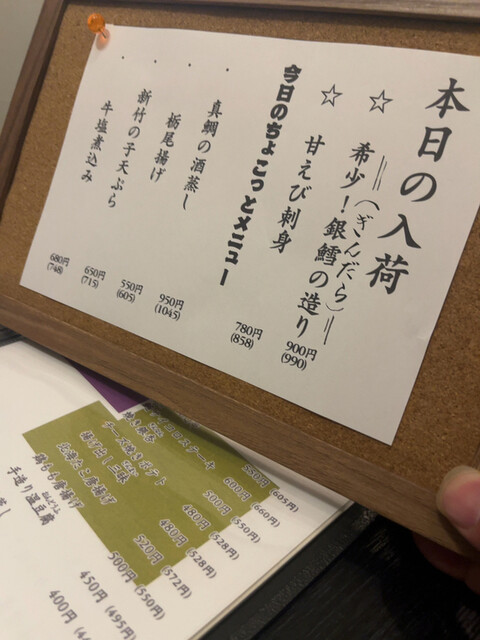 本日の入荷
☆ 希少！銀鱈の造り 900円
(ぎんだら)
(990)
☆ 甘えび刺身 780円
(858)
今日のちょこっとメニュー
・真鯛の酒蒸し 950円
(1045)
・栃尾揚げ 550円
(605)
・新竹の子天ぷら 650円
(715)
・牛塩煮込み 680円
(748)
ステーキ 550円 (605円)
600円 (660円)
チーズ焼きポテト 500円 (550円)
480円 (528円)
北海たこ唐揚げ 480円 (528円)
鶏もも唐揚げ 520円 (572円)
手造り温豆腐 500円 (550円)
450円 (495円)
400円